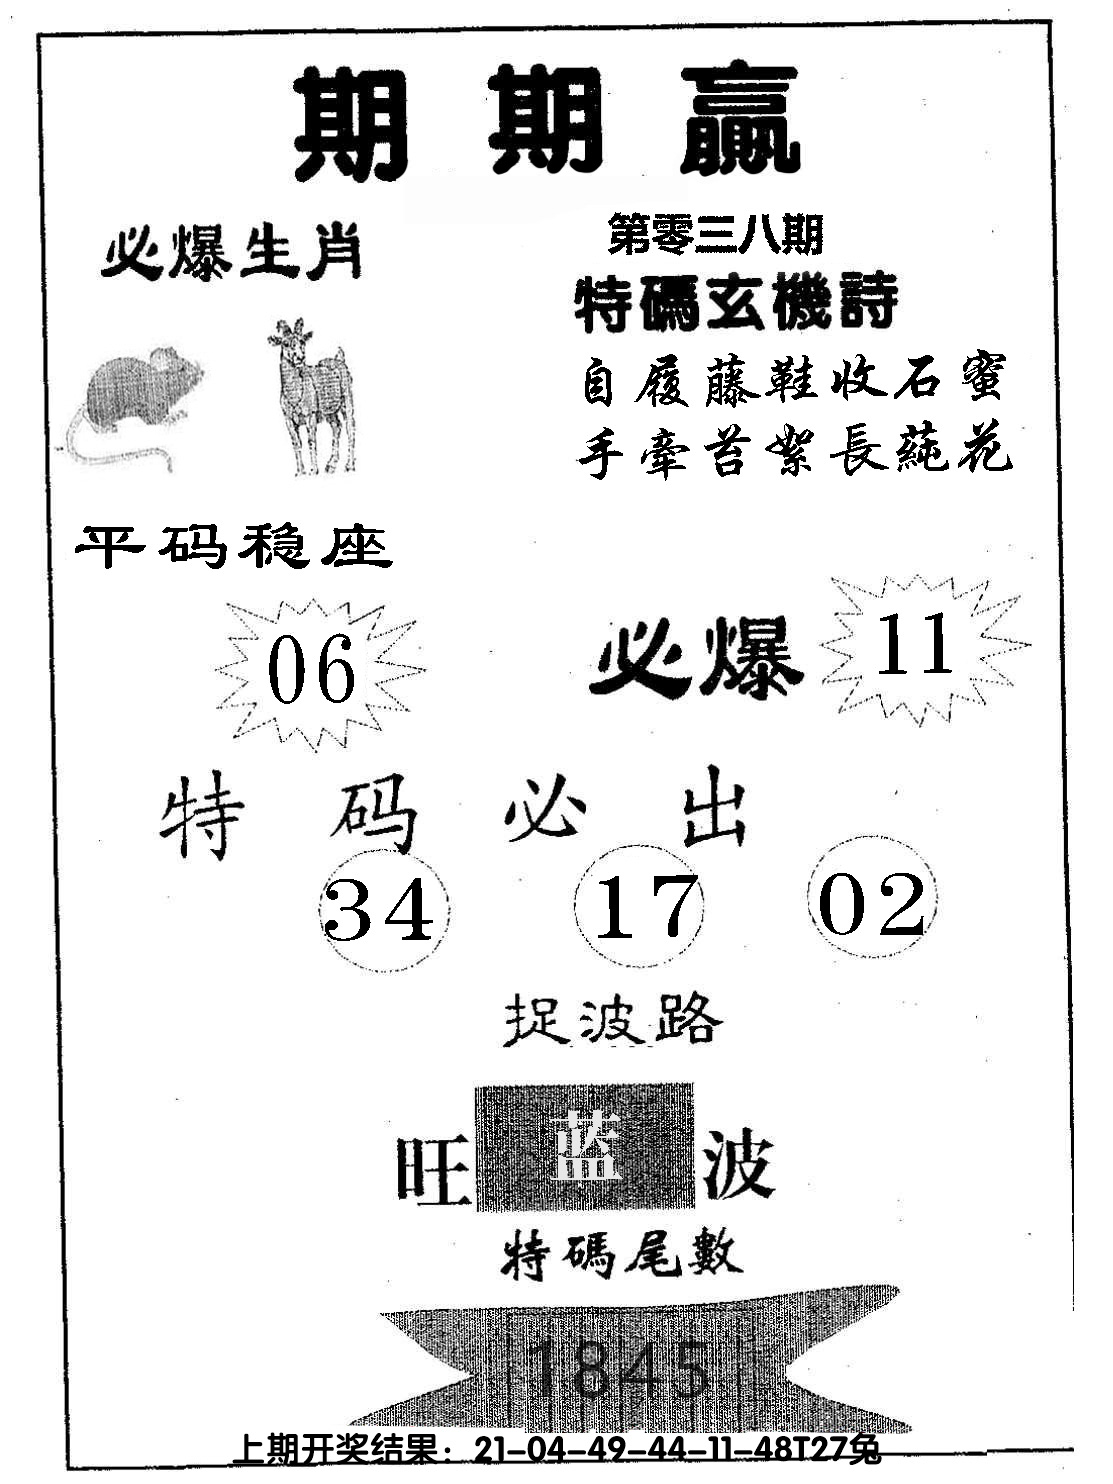 期期赢
必爆生肖
第零三八期
特碼玄機詩
自履藤鞋收石蜜
手牽苔絮長蒓花
平码稳座
06
必爆
11
特码必出
34 17 02
捉波路
旺蓝波
特碼尾數
1845
上期开奖结果：21-04-49-44-11-48T27兔